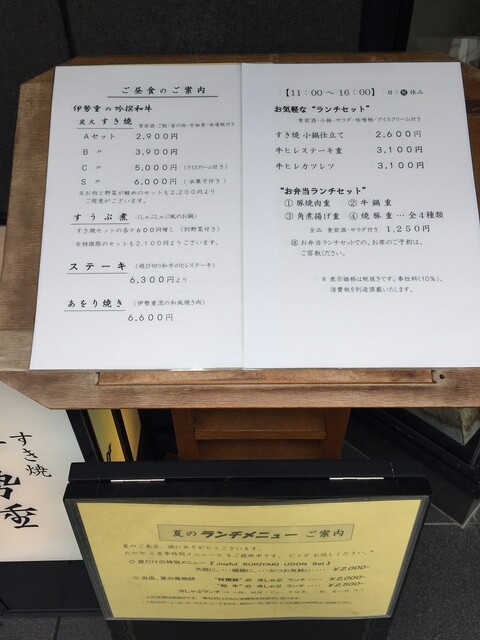 ご昼食のご案内
伊勢重の吟撰和牛
炭火 すき焼
Aセット 2,900円
B 〃 3,900円
C 〃 5,000円 (アイスクリーム付き)
S 〃 6,000円 (水菓子付き)
※お肉と野菜が軽めのセットも2,200円より
ご用意がございます。
すうぷ煮 (しゃぶしゃぶ風のお鍋)
すき焼セットの各々600円増し (割野菜付き)
※特撰豚のセットも2,100円よりございます。
ステーキ (飛び切り和牛のヒレステーキ)
6,300円より
あをり焼き (伊勢重流の和風焼き肉)
6,600円
【11:00 〜 16:00】 日・祝休み
お気軽な "ランチセット"
食前酒・小鉢・サラダ・味噌椀・アイスクリーム付き
すき焼 小鍋仕立て 2,600円
牛ヒレステーキ重 3,100円
牛ヒレカツレツ 3,100円
"お弁当ランチセット"
① 豚焼肉重 ② 牛鍋重
③ 角煮揚げ重 ④ 焼豚重 … 全4種類
全品 食前酒・サラダ付き 1,250円
お弁当ランチセットでの、お席のご予約は、
ご容赦ください。
※ 表示価格は税抜きです。奉仕料(10%)、
消費税を別途頂戴いたします。
すき焼
夏の ランチメニュー ご案内
夏のご来店、誠にありがとうございます。
◇ 夏だけの特別メニュー『 Joyful SUKIYAKI UDON Set 』
¥2,000-
冷しゃぶ ランチ ¥2,000-
"和牛" の 冷しゃぶ ランチ ¥2,500-